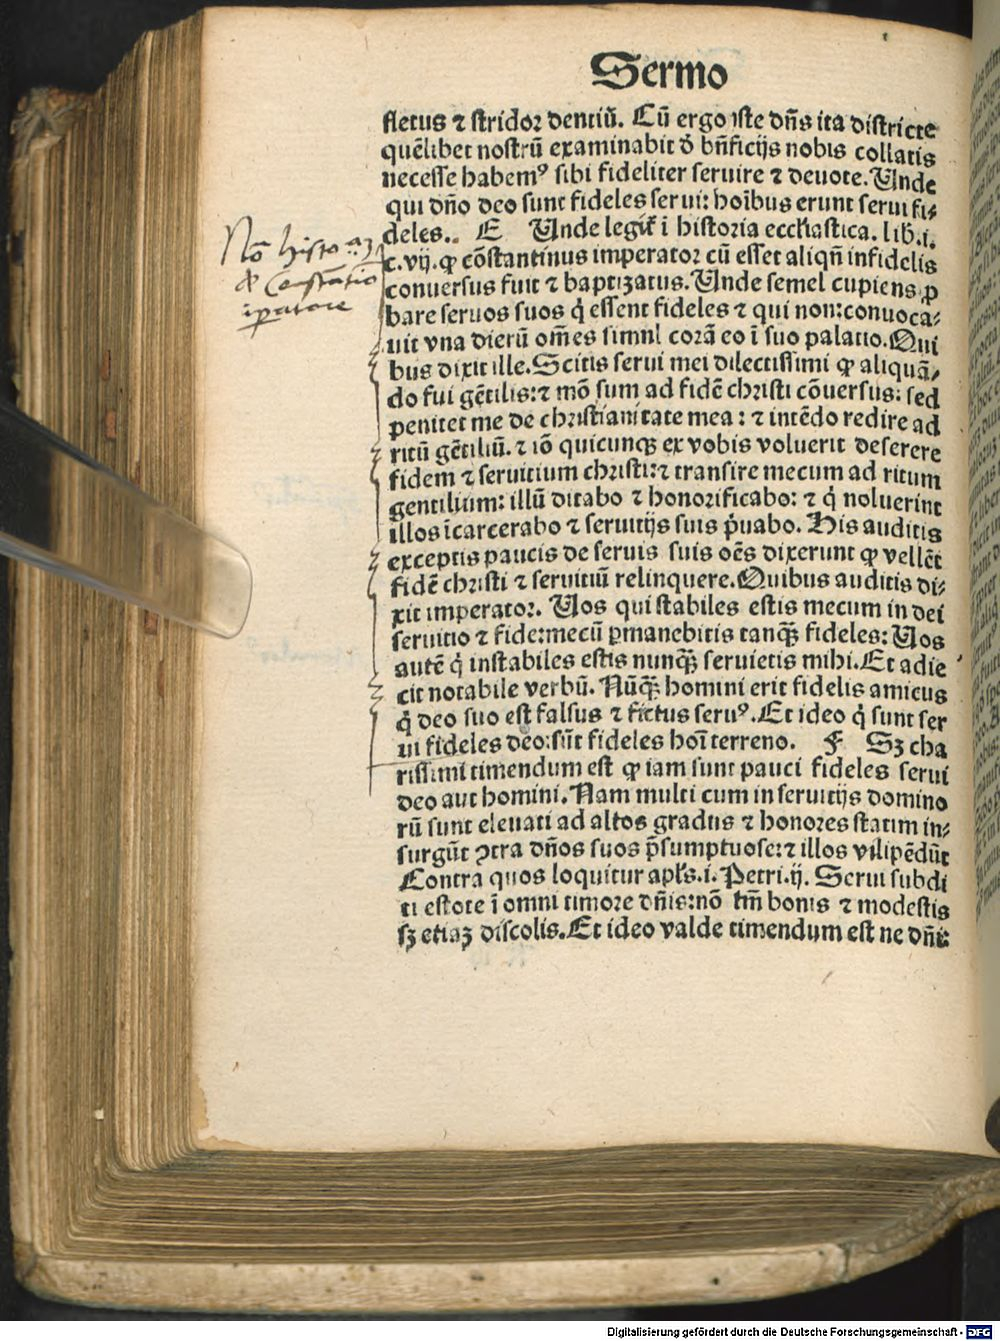 Sermo
fletus ⁊ stridor dentiū. Cū ergo iste dn̄s ita districte
quēlibet nostrū examinabit ď bn̄ficijs nobis collatis
necesse habemꝰ sibi fideliter seruire ⁊ deuote. Unde
qui dn̄o deo sunt fideles serui: hoībus erunt serui fi⸗
deles. E Unde legiť ī historia eccľiastica. lib. i.
c. vij. ꝙ cōstantinus imperator cū esset aliqn̄ infidelis
conuersus fuit ⁊ baptizatus. Unde semel cupiens ꝓ
bare seruos suos q̇ essent fideles ⁊ qui non: conuoca⸗
uit vna dierū om̄es simul corā eo ī suo palatio. Qui
bus dixit ille. Scitis serui mei dilectissimi ꝙ aliquā⸗
do fui gētilis: ⁊ mō sum ad fidē christi cōuersus: sed
penitet me de christianitate mea: ⁊ intēdo redire ad
ritū gētiliū. ⁊ iō quicunqꝫ ex vobis voluerit deserere
fidem ⁊ seruitium christi: ⁊ transire mecum ad ritum
gentilium: illū ditabo ⁊ honorificabo: ⁊ q̇ noluerint
illos īcarcerabo ⁊ seruitijs suis p̄uabo. His auditis
exceptis paucis de seruis suis oēs dixerunt ꝙ vellēt
fidē christi ⁊ seruitiū relinquere. Quibus auditis di⸗
xit imperator. Uos qui stabiles estis mecum in dei
seruitio ⁊ fide: mecū ꝑmanebitis tanqꝫ̄ fideles: Uos
autē q̇ instabiles estis nunqꝫ̄ seruietis mihi. Et adie
cit notabile verbū. Nūqꝫ̄ homini erit fidelis amicus
q̇ deo suo est falsus ⁊ fictus seruꝰ. Et ideo q̇ sunt ser
ui fideles deo: sūt fideles hoī terreno. F Sꝫ cha
rissimi timendum est ꝙ iam sunt pauci fideles serui
deo aut homini. Nam multi cum in seruitijs domino
rū sunt eleuati ad altos gradus ⁊ honores statim in⸗
surgūt ꝯtra dn̄os suos p̄sumptuose: ⁊ illos vilipēdūt
Contra quos loquitur apľs. i. Petri. ij. Serui subdi
ti estote ī omni timore dn̄is: nō tm̄ bonis ⁊ modestis
sꝫ etiaꝫ discolis. Et ideo valde timendum est ne dn̄i:
Nō histo⟨ri⟩aꝫ
de Constātino
īperatore
Digitalisierung gefördert durch die Deutsche Forschungsgemeinschaft - DFG